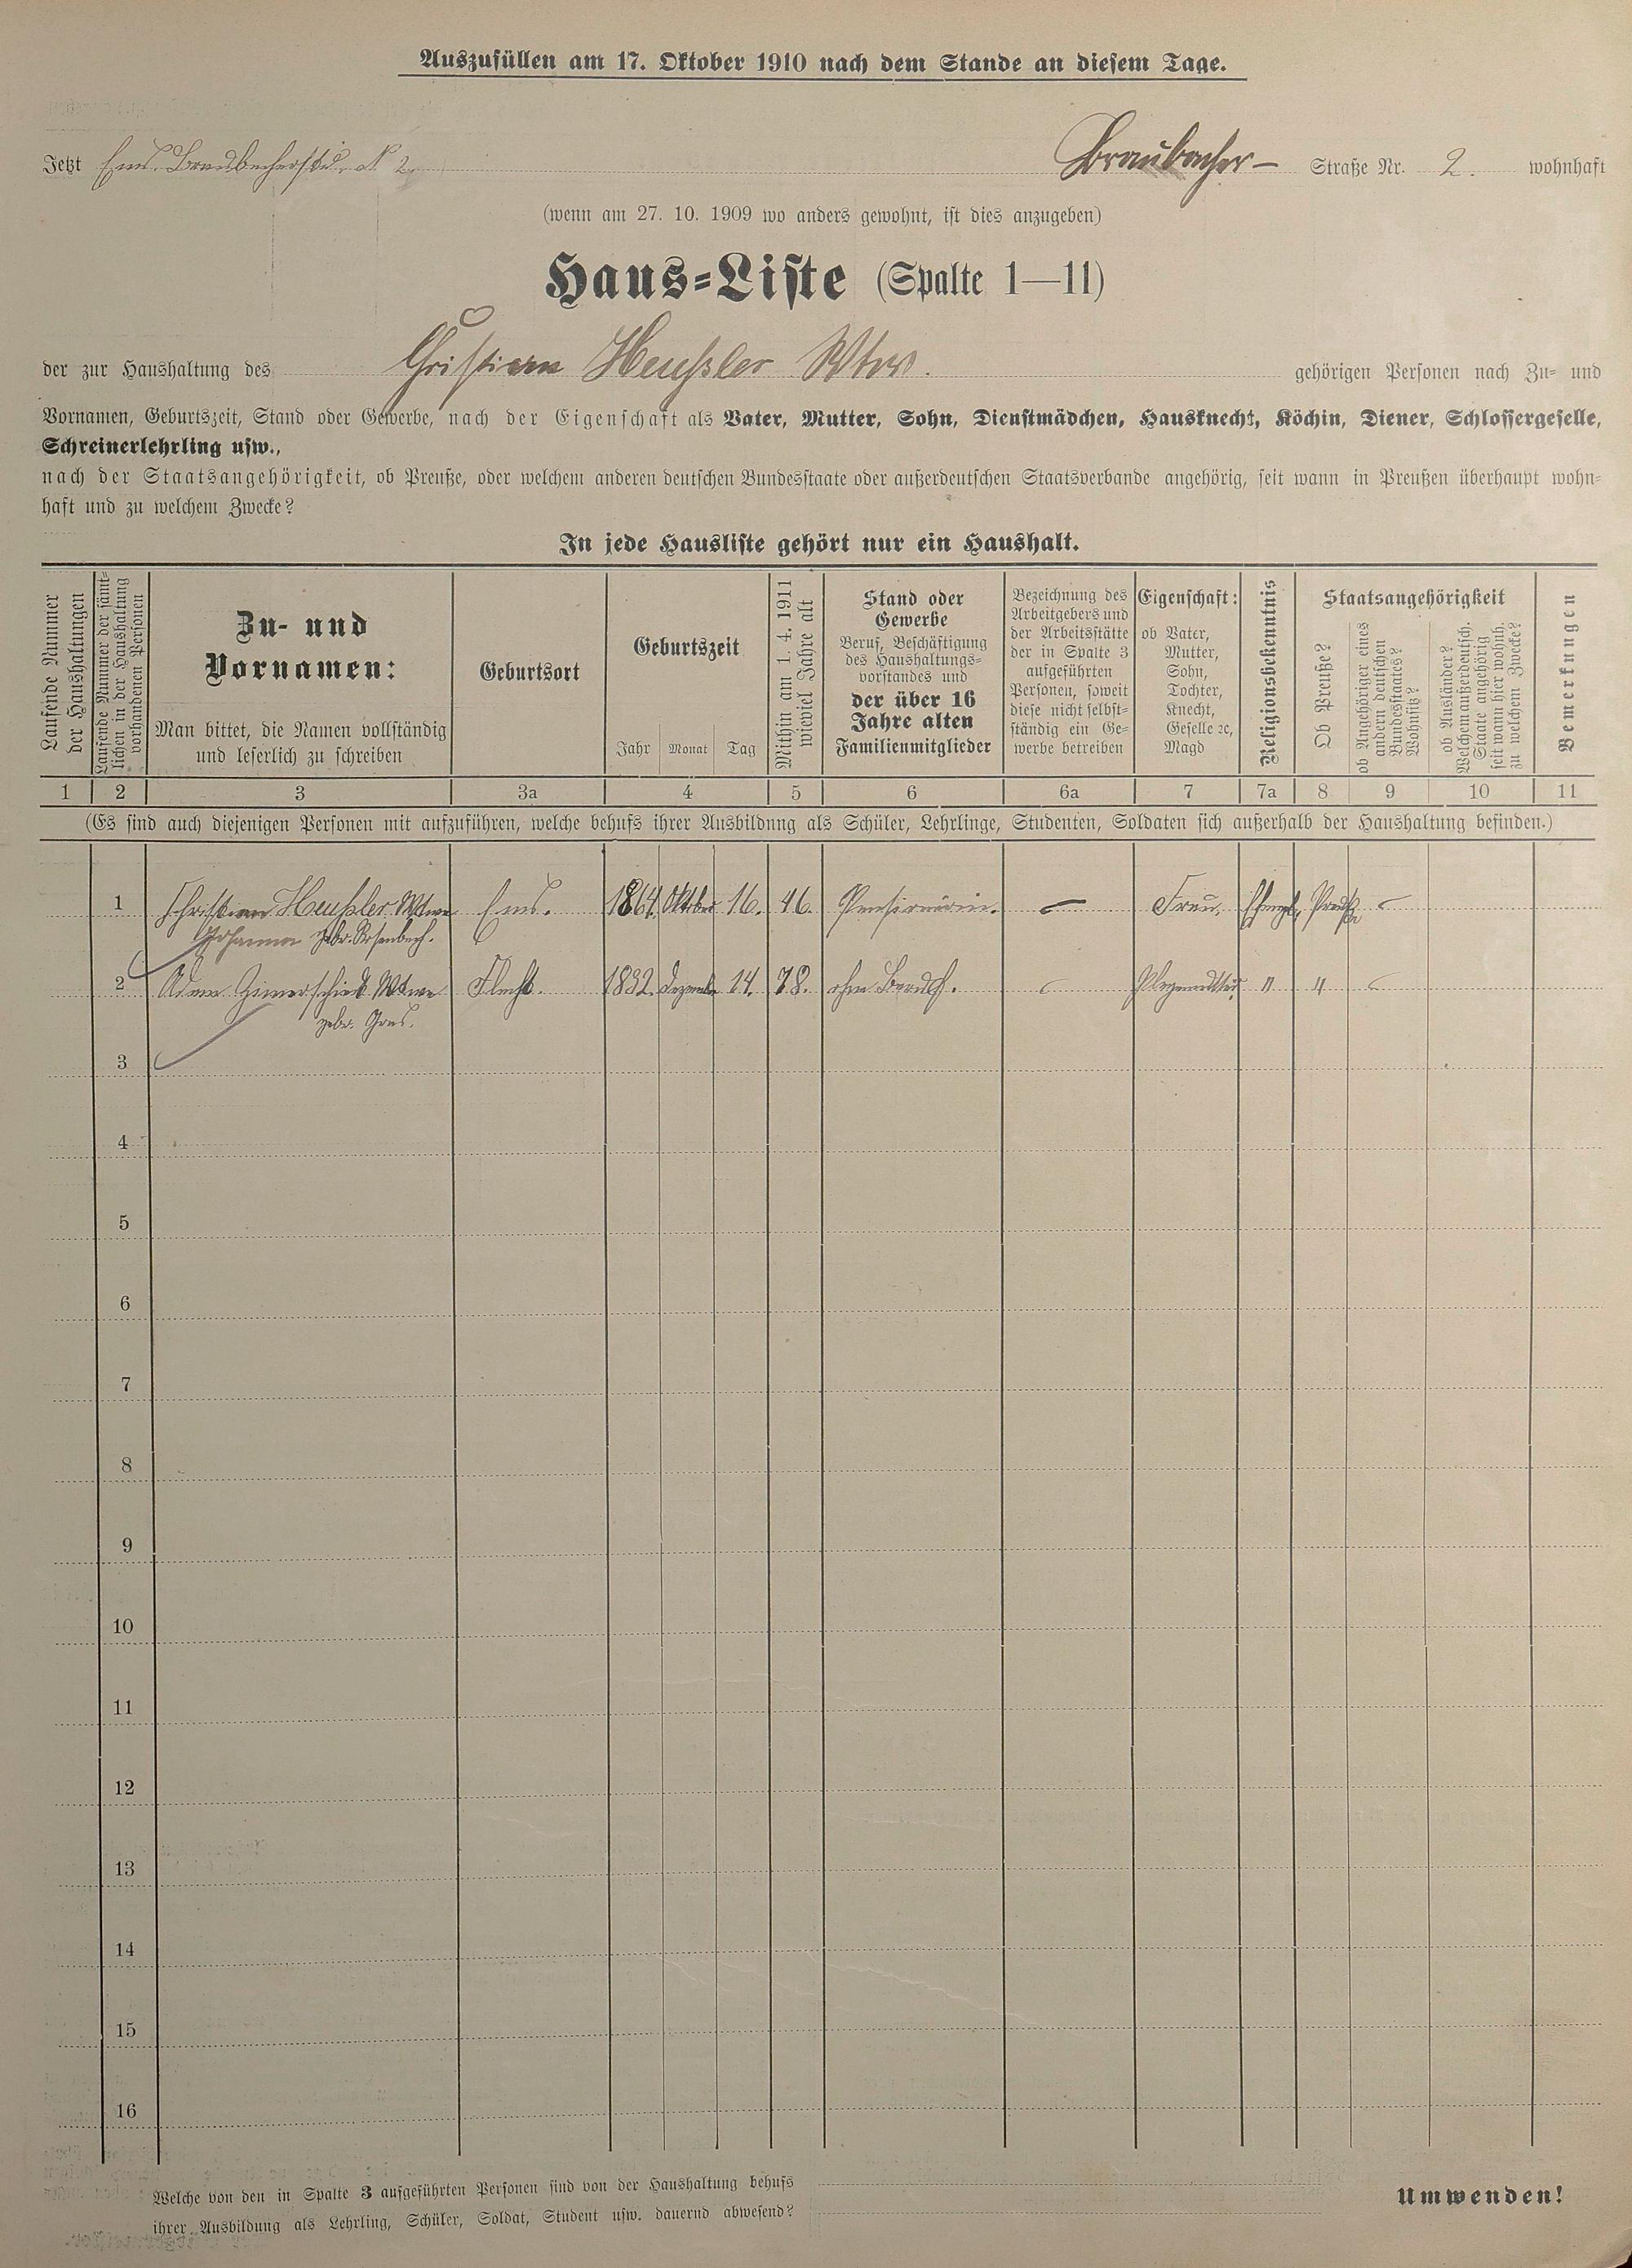 Auszufüllen am 17. Oktober 1910 nach dem Stande an diesem Tage.
Jetzt Ems. Braubacherstr. N 2. Braubacher- Straße Nr. 2. wohnhaft
(wenn am 27. 10. 1909 wo anders gewohnt, ist dies anzugeben)
Haus-Liste (Spalte 1—11)
der zur Haushaltung des Christian Heußler Wtw. gehörigen Personen nach Zu- und
Vornamen, Geburtszeit, Stand oder Gewerbe, nach der Eigenschaft als Vater, Mutter, Sohn, Dienstmädchen, Hausknecht, Köchin, Diener, Schlossergeselle,
Schreinerlehrling usw.,
nach der Staatsangehörigkeit, ob Preuße, oder welchem anderen deutschen Bundesstaate oder außerdeutschen Staatsverbande angehörig, seit wann in Preußen überhaupt wohn-
haft und zu welchem Zwecke?
In jede Hausliste gehört nur ein Haushalt.
Laufende Nummer
der Haushaltungen
Laufende Nummer der sämt-
lichen in der Haushaltung
vorhandenen Personen
Zu- und
Vornamen:
Man bittet, die Namen vollständig
und leserlich zu schreiben
Geburtsort
Geburtszeit
Jahr Monat Tag
Mithin am 1. 4. 1911
wieviel Jahre alt
Stand oder
Gewerbe
Beruf, Beschäftigung
des Haushaltungs-
vorstandes und
der über 16
Jahre alten
Familienmitglieder
Bezeichnung des
Arbeitgebers und
der Arbeitsstätte
der in Spalte 3
aufgeführten
Personen, soweit
diese nicht selbst-
ständig ein Ge-
werbe betreiben
Eigenschaft:
ob Vater,
Mutter,
Sohn,
Tochter,
Knecht,
Geselle ꝛc,
Magd
Religionsbekenntnis
Staatsangehörigkeit
Ob Preuße?
ob Angehöriger eines
andern deutschen
Bundesstaates?
Wohnsitz?
ob Ausländer?
Welchem außerdeutsch.
Staate angehörig
seit wann hier wohnh.
zu welchem Zwecke?
Bemerkungen
1 2 3 3a 4 5 6 6a 7 7a 8 9 10 11
(Es sind auch diejenigen Personen mit aufzuführen, welche behufs ihrer Ausbildung als Schüler, Lehrlinge, Studenten, Soldaten sich außerhalb der Haushaltung befinden.)
1 Christian Heußler Wtwe Ems. 1864. Oktober 16. 46. Pensionärin. — Frau. Preuße —
Johanna gebr. Rosenbach.
2 Adam Zimerschied Wtwe Flacht. 1832. Dezember 14. 78. ohne Beruf. — Pflegemutter " " —
3
4
5
6
7
8
9
10
11
12
13
14
15
16
Welche von den in Spalte 3 aufgeführten Personen sind von der Haushaltung behufs
ihrer Ausbildung als Lehrling, Schüler, Soldat, Student usw. dauernd abwesend?
Umwenden!